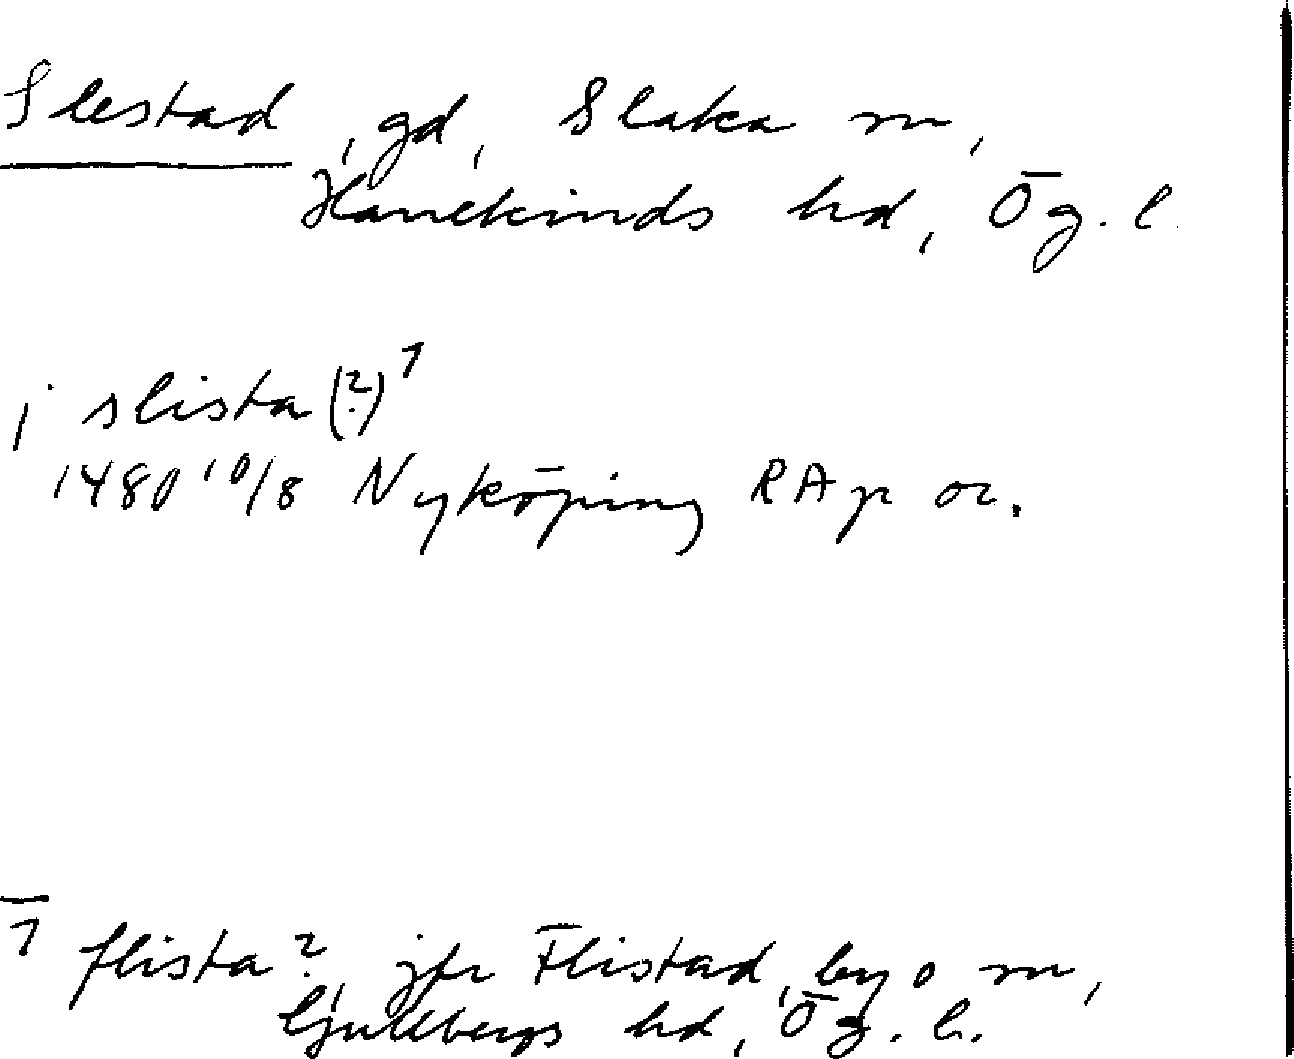 Slestad, gd, Slaka sn,
Hanekinds hd, Ög. l.
i slista (?)¹
1480 10/8 Nyköping RAp or.
1 flista?, jfr Flistad, by o sn,
Gullbergs hd, Ög. l.